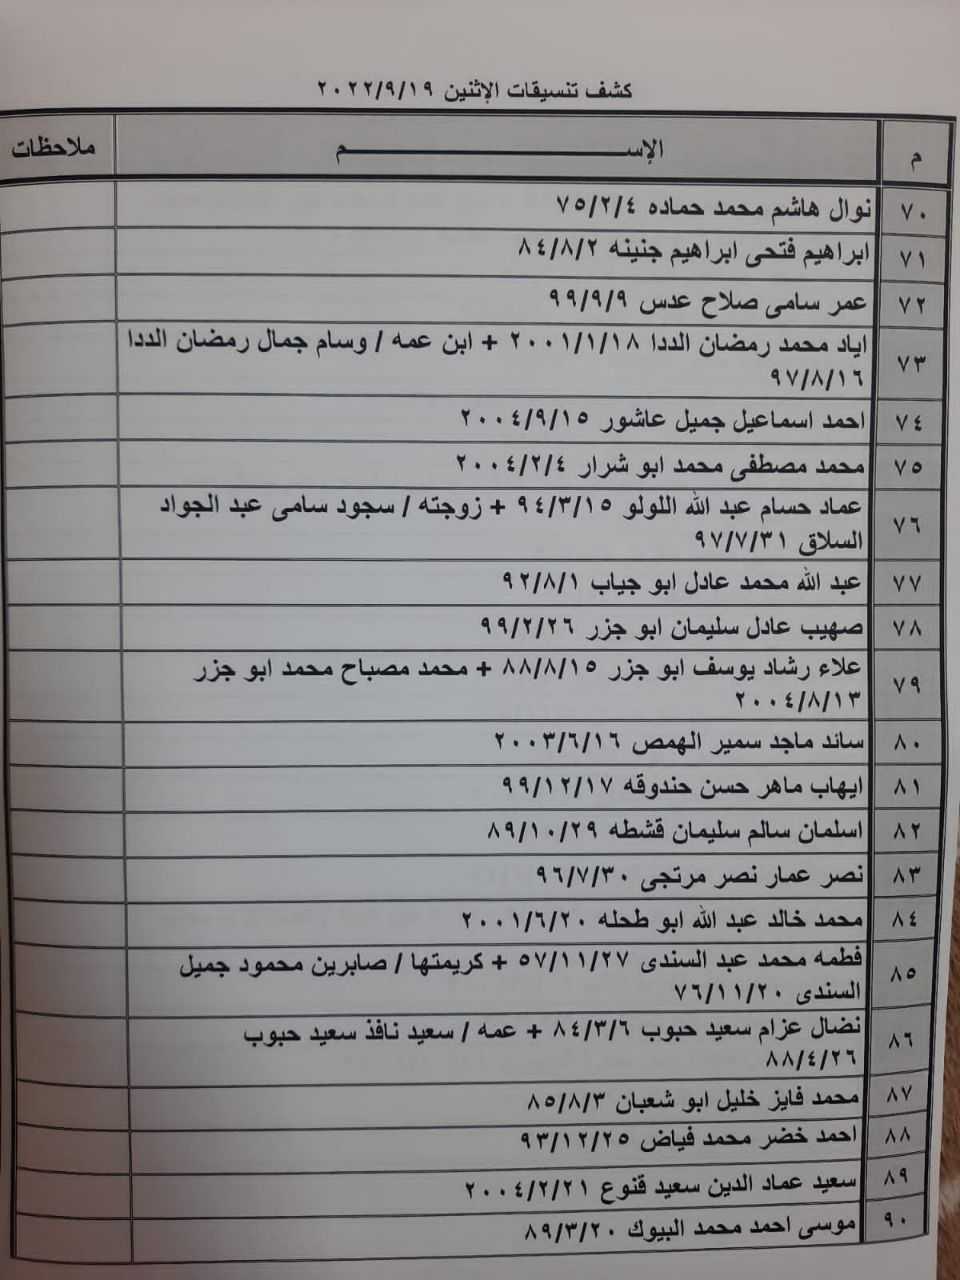 كشف تنسيقات الإثنين ٢٠٢٢/٩/١٩
م الإســـــــــــم ملاحظات
٧٠ نوال هاشم محمد حماده ٧٥/٢/٤
٧١ ابراهيم فتحى ابراهيم جنينه ٨٤/٨/٢
٧٢ عمر سامى صلاح عدس ٩٩/٩/٩
٧٣ اياد محمد رمضان الددا ٢٠٠١/١/١٨ + ابن عمه / وسام جمال رمضان الددا
٩٧/٨/١٦
٧٤ احمد اسماعيل جميل عاشور ٢٠٠٤/٩/١٥
٧٥ محمد مصطفى محمد ابو شرار ٢٠٠٤/٢/٤
٧٦ عماد حسام عبد الله اللولو ٩٤/٣/١٥ + زوجته / سجود سامى عبد الجواد
السلاق ٩٧/٧/٣١
٧٧ عبد الله محمد عادل ابو جياب ٩٢/٨/١
٧٨ صهيب عادل سليمان ابو جزر ٩٩/٢/٢٦
٧٩ علاء رشاد يوسف ابو جزر ٨٨/٨/١٥ + محمد مصباح محمد ابو جزر
٢٠٠٤/٨/١٣
٨٠ سائد ماجد سمير الهمص ٢٠٠٣/٦/١٦
٨١ ايهاب ماهر حسن حندوقه ٩٩/١٢/١٧
٨٢ اسلمان سالم سليمان قشطه ٨٩/١٠/٢٩
٨٣ نصر عمار نصر مرتجى ٩٦/٧/٣٠
٨٤ محمد خالد عبد الله ابو طحله ٢٠٠١/٦/٢٠
٨٥ فطمه محمد عبد السندى ٥٧/١١/٢٧ + كريمتها / صابرين محمود جميل
السندى ٧٦/١١/٢٠
٨٦ نضال عزام سعيد حبوب ٨٤/٣/٦ + عمه / سعيد نافذ سعيد حبوب
٨٨/٤/٢٦
٨٧ محمد فايز خليل ابو شعبان ٨٥/٨/٣
٨٨ احمد خضر محمد فياض ٩٣/١٢/٢٥
٨٩ سعيد عماد الدين سعيد قنوع ٢٠٠٤/٢/٢١
٩٠ موسى احمد محمد البيوك ٨٩/٣/٢٠